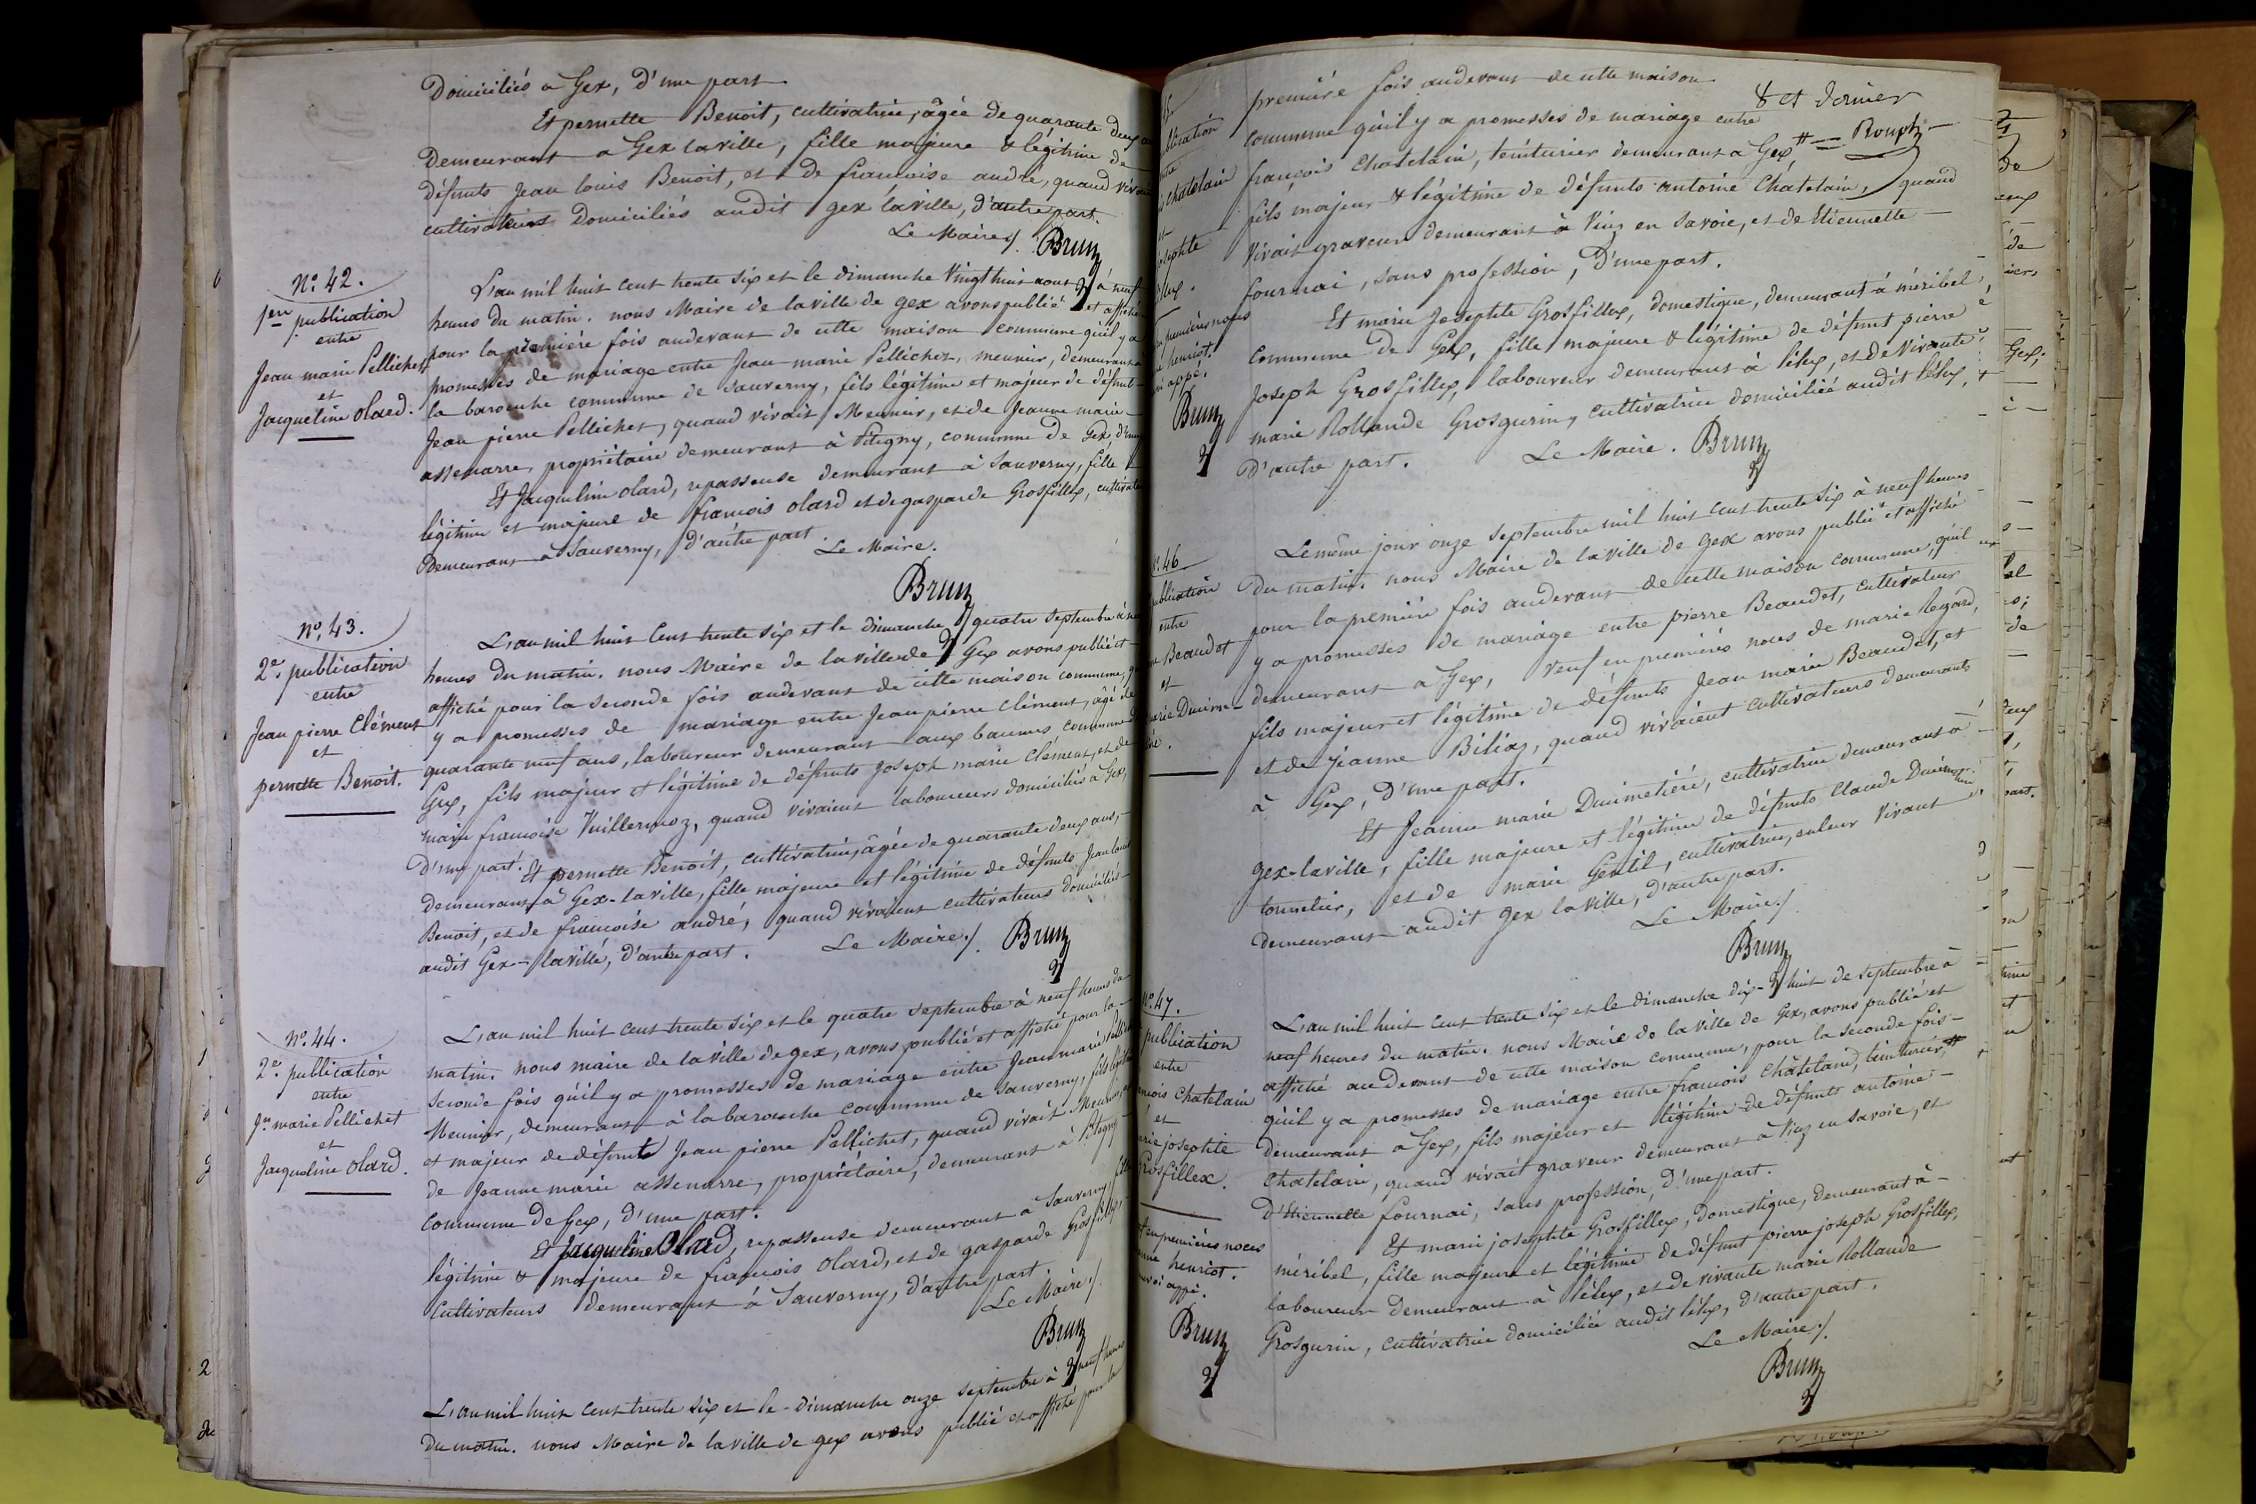 Domiciliés a Gex, d'une part
Et pernette Benoit, cultivatrice, âgée de quarante deux
demeurant a Gex la ville, fille majeure & légitime de
défunts Jean louis Benoit, et de francoise andré, quand
cultivateurs Domiciliés audit gex laville, d'autre part.
Le Maire /. Brun
N° 42.
1ere publication
entre
Jean marie Pellichet
et
Jacqueline olard.
L'an mil huit cent trente six et le dimanche Vingt huit aout à neuf
heures du matin. nous Maire de la ville de gex avons publié et affiché
pour la première fois audevant de cette maison commune qu'il y a
promesses de mariage entre Jean marie Pellichet, meunier, demeurant a
la barouche commune de Sauverny, fils légitime et majeur de défunt
Jean pierre Pellichet, quand vivait Meunier, et de Jeanne marie
assenarre, propriétaire demeurant à Pitegny, commune de Gex, d'une
Et Jacqueline olard, repasseuse demeurant à Sauverny, fille
légitime et majeure de francois olard et de gasparde Grosfillex,
Demeurant a Sauverny, d'autre part
Le Maire.
Brun
N°. 43.
2e. publication
entre
Jean pierre Clément
et
pernette Benoit.
L'an mil huit Cent trente six et le dimanche quatre septembre à
heures du matin. nous Maire de la ville de Gex avons publié et
affiché pour la seconde fois audevant de cette maison commune,
y a promesses de mariage entre Jean pierre Clément, âgé de
quarante neuf ans, laboureur demeurant aux baumes, commune
Gex, fils majeur & légitime de défunts Joseph marie Clément, et de
marie francoise Vuillermoz, quand vivaient laboureurs domiciliés à Gex,
D'une part. Et pernette Benoit, cultivatrice, âgée de quarante deux ans,
demeurant à Gex-la ville, fille majeure et légitime de défunts Jean louis
Benoit, et de francoise andré, quand vivaient cultivateurs domiciliés
audit Gex-laville, d'autre part. Le Maire /. Brun
N° 44.
2e. publication
entre
Jn marie Pellichet
et
Jacqueline olard.
L'an mil huit cent trente six et le quatre septembre à neuf heures du
matin. nous maire de la ville de gex, avons publié et affiché pour la
seconde fois qu'il y a promesses de mariage entre Jean marie
Meunier, demeurant à la barouche commune de Sauverny, fils
et majeur de défunt Jean pierre Pellichet, quand vivait Meunier,
de Jeanne marie assenarre, propriétaire, demeurant à Pitegny
commune de Gex, d'une part.
Et Jacqueline Olard, repasseuse demeurant à Sauverny
légitime & majeure de francois olard, et de gasparde Grosfillex,
Cultivateurs demeurant à Sauverny, d'autre part
Le Maire /.
Brun
L'an mil huit cent trente six et le dimanche onze septembre à neuf heures
du matin. nous Maire de la ville de gex avons publié et affiché pour la
Chatelain
et
henriot.
appé.
Brun
première fois audevant de cette maison
commune qu'il y a promesses de mariage entre & et dernier
françois Chatelain, teinturier demeurant a Gex, # = Rouph
fils majeur & légitime de défunts antoine Chatelain, quand
Vivait graveur demeurant à Viuz en Savoie, et de Etiennette
fournai, sans profession, D'une part.
Et marie Josephte Grosfillex, domestique, demeurant á méribel,
commune de Gex, fille majeure & légitime de défunt pierre
Joseph Grosfillex, laboureur demeurant à lélex, et de Vivante
marie Rollande Grosgurin, cultivatrice domiciliée audit lélex,
D'autre part. Le Maire. Brun
N° 46
publication
entre
Beaudet
et
Le même jour onze septembre mil huit cent trente six à neuf heures
du matin. nous Maire de la ville de Gex avons publié et affiché
pour la première fois audevant de cette maison commune, qu'il
y a promesses de mariage entre pierre Beaudet, cultivateur
demeurant a Gex, veuf en premières noces de marie Regard,
fils majeur et légitime de défunts Jean marie Beaudet, et
et de Jeanne Biliaz, quand vivaient cultivateurs demeurants
à Gex, D'une part.
Et Jeanne marie Ducimetière, cultivatrice demeurant à
gex-laville, fille majeure et légitime de défunts Claude
tonnelier, et de marie Gentil, cultivatrice, en leur Vivant
demeurant audit gex la ville, d'autre part.
Le Maire /.
Brun
N° 47.
publication
entre
Chatelain
et
josephte
Grosfillex.
en premières noces
henriot.
appé.
Brun
L'an mil huit cent trente six et le dimanche dix-huit de septembre à
neuf heures du matin. nous Maire de la ville de Gex, avons publié et
affiché audevant de cette maison commune, pour la seconde fois
qu'il y a promesses de mariage entre francois Châtelain, teinturier #
demeurant a Gex, fils majeur et légitime de défunts antoine
Chatelain, quand vivait graveur demeurant à Viuz en savoie, et
d'Etiennette fournai, sans profession, D'une part.
Et marie josephte Grosfillex, Domestique, demeurant à
méribel, fille majeure et légitime de défunt pierre joseph Grosfillex,
laboureur demeurant à lélex, et de vivante marie Rollande
Grosgurin, cultivatrice domiciliée audit lélex, d'autre part.
Le Maire /.
Brun